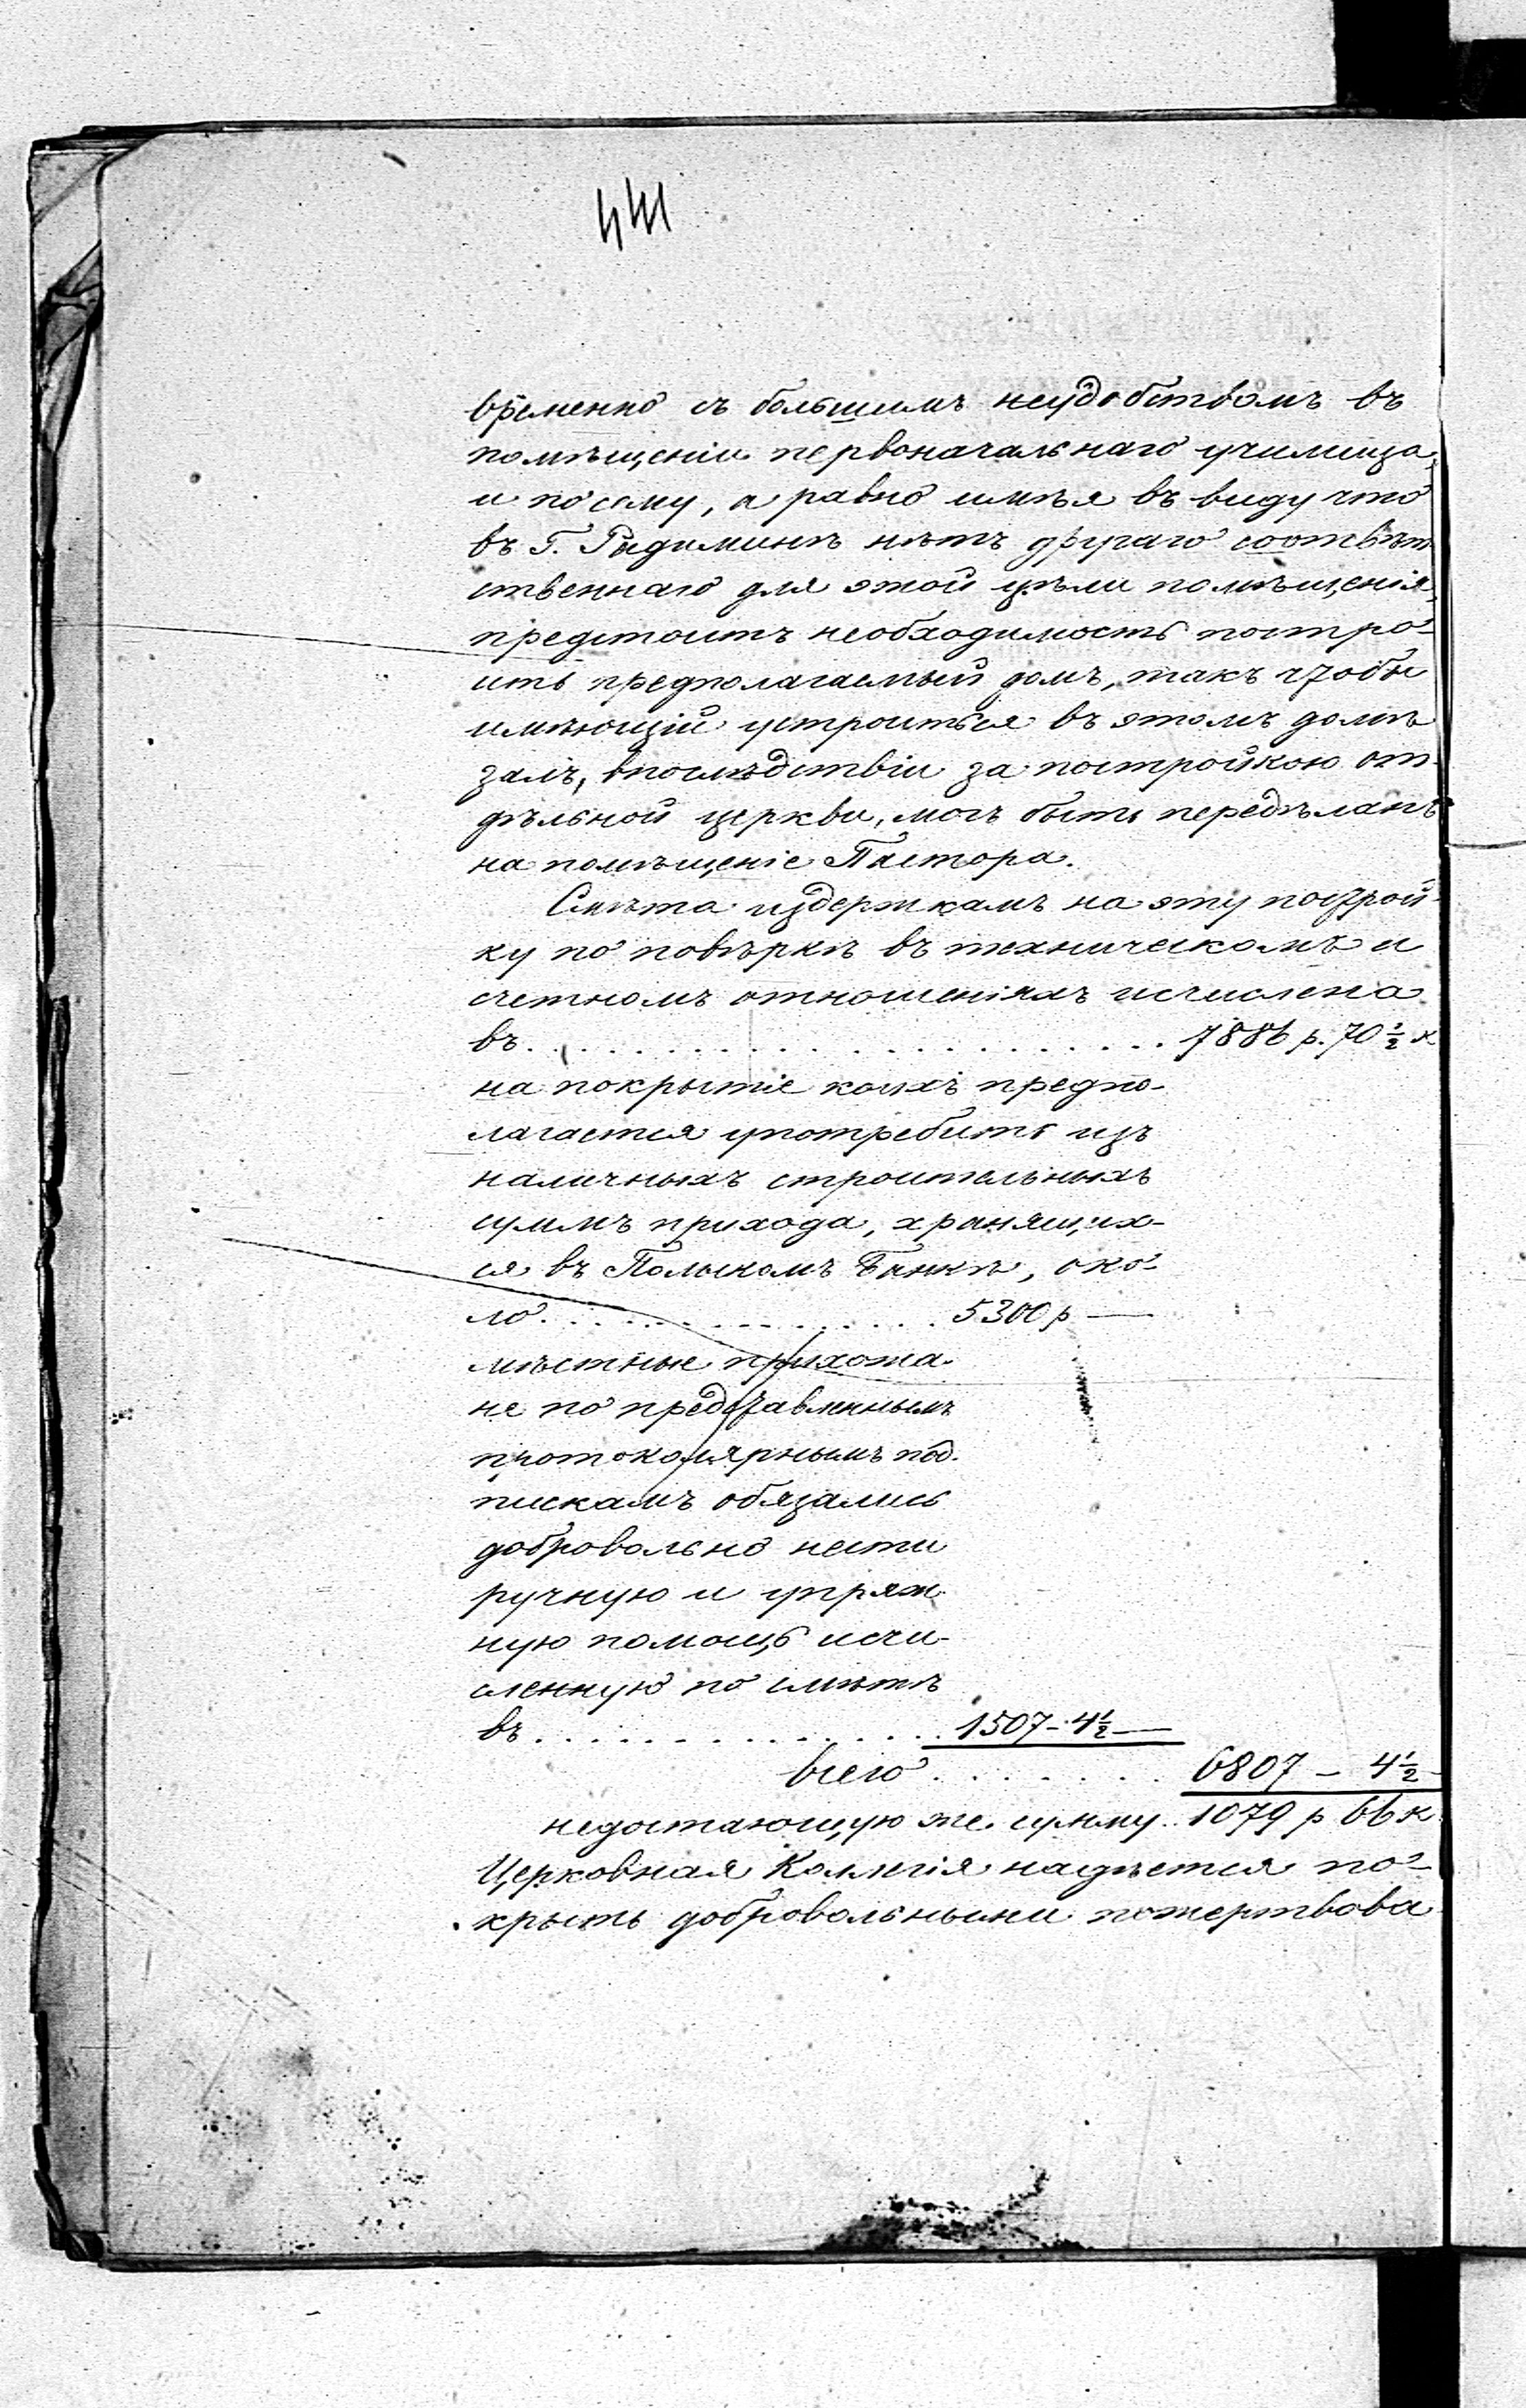 441
временно съ большимъ неудобствомъ въ
помѣщеніи первоначальнаго училища,
и посему, а равно имѣя въ виду что
въ Г. Радиминѣ нѣтъ другаго соотвѣт
ственнаго для этой цѣли помѣщенія,
предстоитъ необходимость постро-
ить предполагаемый домъ, такъ чтобы
имѣющій устроиться въ этомъ домѣ
залъ, впослѣдствіи за постройкою от-
дѣльной церкви, могъ быть передѣланъ
на помѣщеніе Пастора.
Смѣта издержкамъ на эту построй-
ку по повѣркѣ въ техническомъ и
счетномъ отношеніяхъ исчислена
въ . . . . . . . . . . . . . . . . . . . . . 7886 р. 70 ½ к
на покрытіе коихъ предпо-
лагается употребить изъ
наличныхъ строительныхъ
суммъ прихода, хранящих-
ся въ Польскомъ Банкѣ, око-
ло . . . . . . . . . . . . . . 5300 р —
мѣстные прихожа-
не по представленнымъ
протоколярнымъ под-
пискамъ обязались
добровольно нести
ручную и упряж-
ную помощь исчи-
сленную по смѣтѣ
въ . . . . . . . . . . . . . . 1507 - 4½ —
всего . . . . . . . . 6807 — 4½ -
недостающую же сумму . . 1079 р 66 к
Церковная Коллегія надѣется по-
крыть добровольными пожертвова